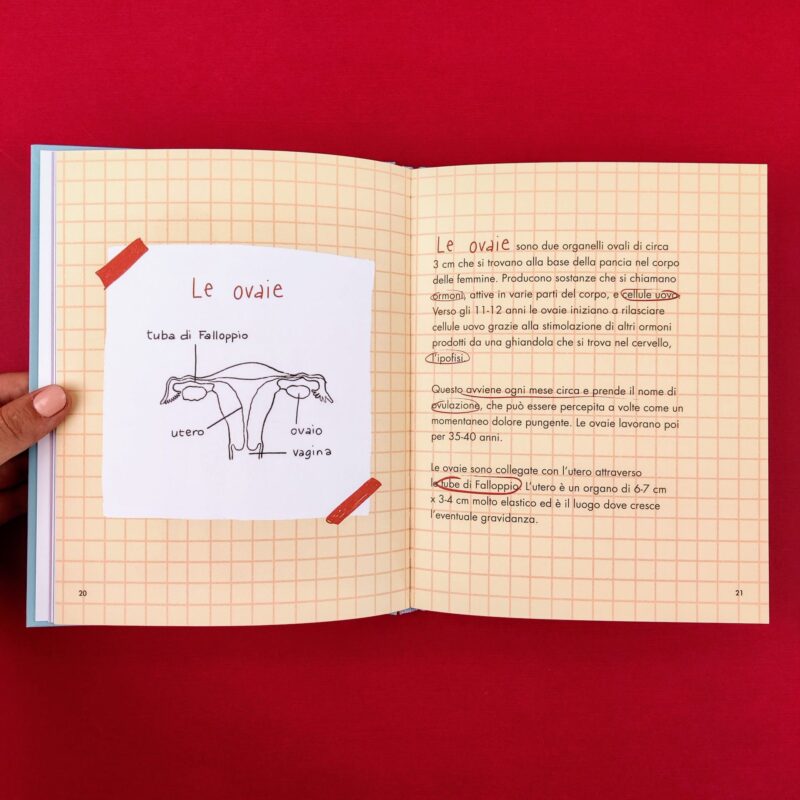 Le ovaie
tuba di Falloppio
utero
ovaio
vagina
20
Le ovaie sono due organelli ovali di circa
3 cm che si trovano alla base della pancia nel corpo
delle femmine. Producono sostanze che si chiamano
ormoni, attive in varie parti del corpo, e cellule uovo.
Verso gli 11-12 anni le ovaie iniziano a rilasciare
cellule uovo grazie alla stimolazione di altri ormoni
prodotti da una ghiandola che si trova nel cervello,
l'ipofisi.
Questo avviene ogni mese circa e prende il nome di
ovulazione, che può essere percepita a volte come un
momentaneo dolore pungente. Le ovaie lavorano poi
per 35-40 anni.
Le ovaie sono collegate con l'utero attraverso
le tube di Falloppio. L'utero è un organo di 6-7 cm
x 3-4 cm molto elastico ed è il luogo dove cresce
l'eventuale gravidanza.
21